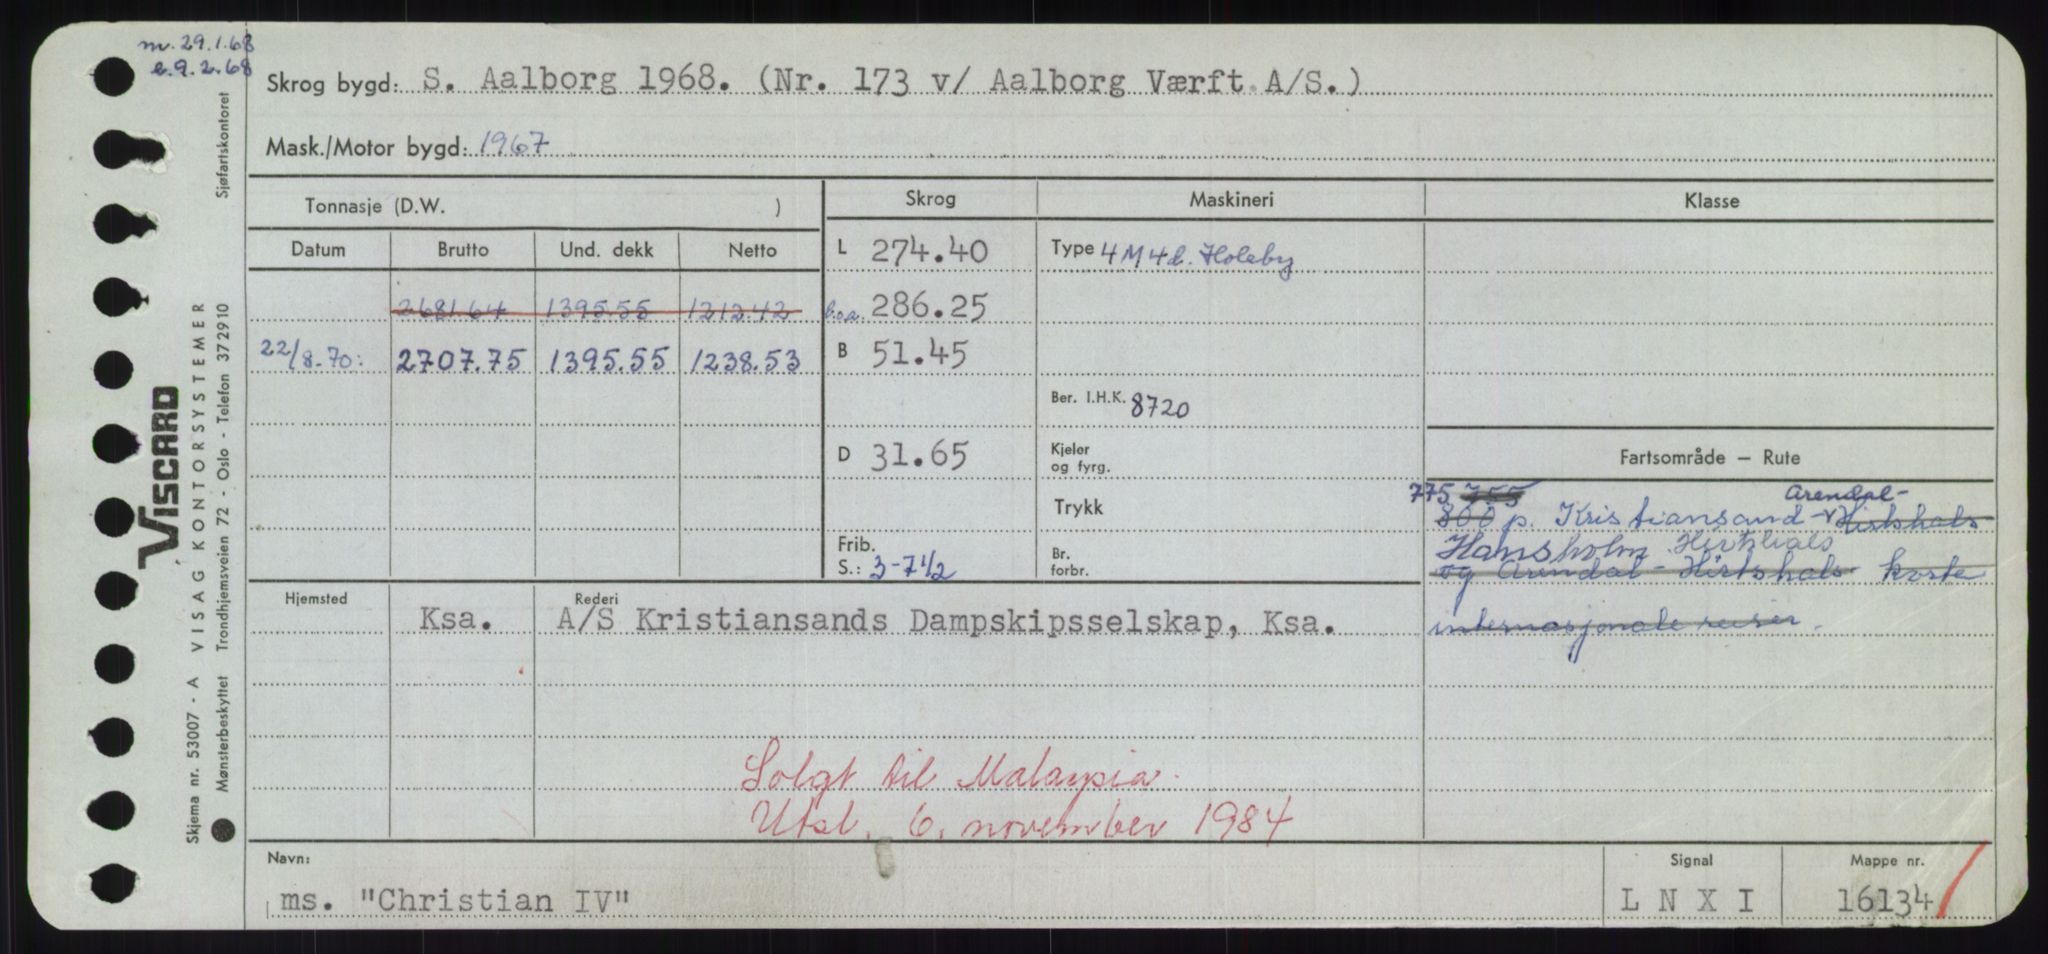 m. 29.1.68
e. 9.2.68
Skrog bygd: S. Aalborg 1968. (Nr. 173 v/ Aalborg Værft A/S.)
Mask./Motor bygd: 1967
Tonnasje (D.W. )
Skrog Maskineri Klasse
Datum Brutto Und. dekk Netto
L 274.40 Type 4M4d. Holeby
2681.64 1395.55 1212.42 l.o.a. 286.25
22/8-70: 2707.75 1395.55 1238.53 B 51.45
Ber. I.H.K. 8720
D 31.65 Kjeler og fyrg.
Fartsområde – Rute
Trykk
775 755 Arendal-
800 p. Kristiansand - Hirtshals
Frib. S.: 3-7½ Br. forbr.
Hansholm Hirtshals
og Arendal - Hirtshals korte
internasjonale reiser.
Hjemsted Rederi
Ksa. A/S Kristiansands Dampskipsselskap, Ksa.
Solgt til Malaysia.
Utsl. 6. november 1984
Navn: Signal Mappe nr.
ms. "Christian IV" L N X I 16134
Skjema nr. 53007 - A VISAG KONTORSYSTEMER Sjøfartskontoret
Mønsterbeskyttet Trondhjemsveien 72 - Oslo - Telefon 372910
VISCARD